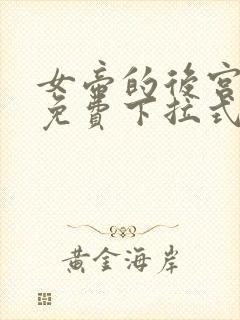 女帝的後宮
免費下拉式
黃金海岸